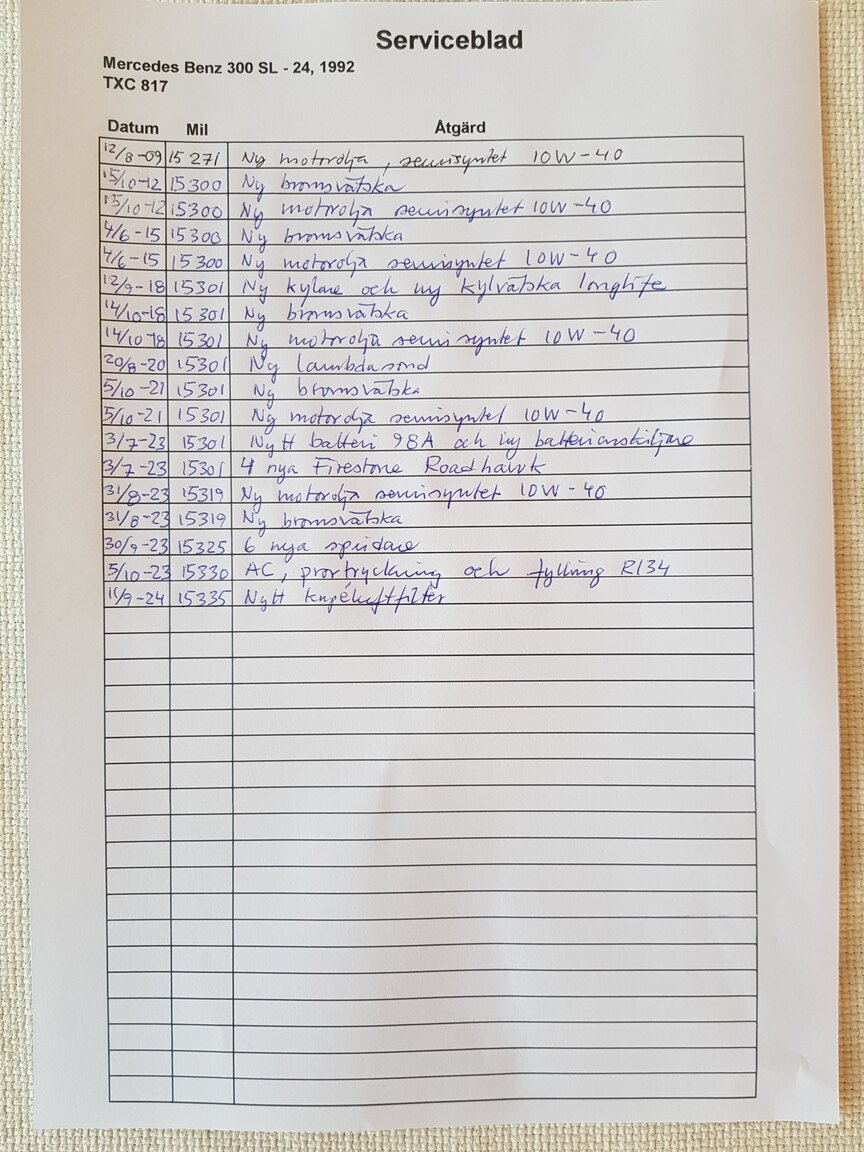 Serviceblad
Mercedes Benz 300 SL - 24, 1992
TXC 817
Datum Mil Åtgärd
12/8-09 15271 Ny motorolja, semisyntet 10W-40
15/10-12 15300 Ny bromsvätska
15/10-12 15300 Ny motorolja semisyntet 10W-40
4/6-15 15300 Ny bromsvätska
4/6-15 15300 Ny motorolja semisyntet 10W-40
12/9-18 15301 Ny kylare och ny kylvätska longlife
14/10-18 15301 Ny bromsvätska
14/10-18 15301 Ny motorolja semisyntet 10W-40
20/8-20 15301 Ny lambdasond
5/10-21 15301 Ny bromsvätska
5/10-21 15301 Ny motorolja semisyntet 10W-40
3/7-23 15301 Nytt batteri 98A och ny batterianskiljare
3/7-23 15301 4 nya Firestone Roadhawk
31/8-23 15319 Ny motorolja semisyntet 10W-40
31/8-23 15319 Ny bromsvätska
30/9-23 15325 6 nya spridare
5/10-23 15330 AC, provtryckning och fyllning R134
11/9-24 15335 Nytt kupéluftfilter